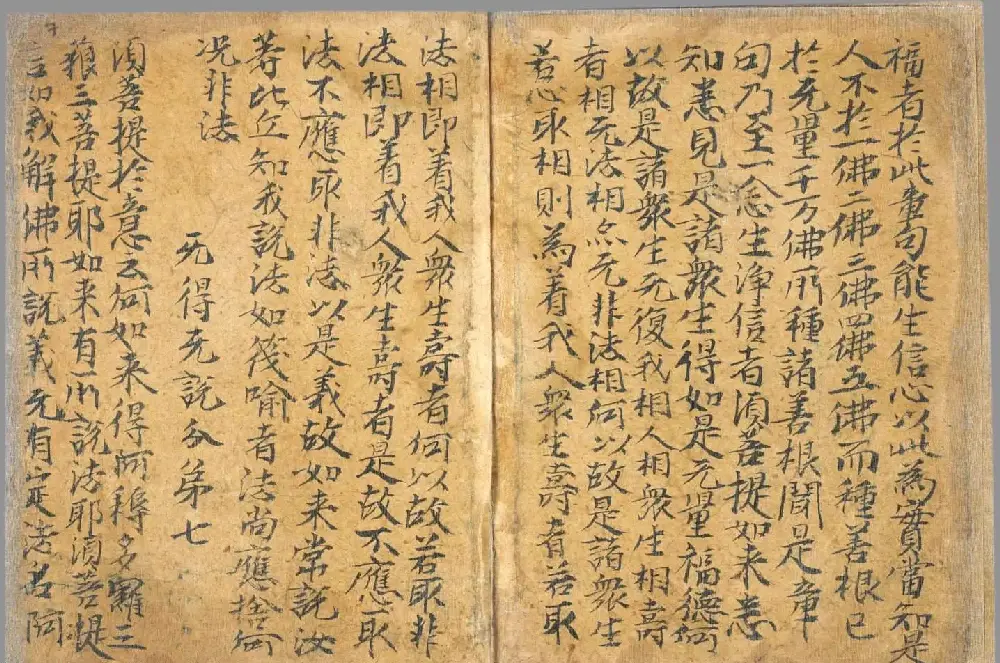 福者於此章句能生信心以此為實當知是
人不於一佛二佛三佛四佛五佛而種善根已
於无量千万佛所種諸善根聞是章
句乃至一念生淨信者須菩提如来悉
知悉見是諸衆生得如是无量福德何
以故是諸衆生无復我相人相衆生相壽
者相无法相亦无非法相何以故是諸衆生
若心取相則為着我人衆生壽者若取
法相即着我人衆生壽者何以故若取非
法相即着我人衆生壽者是故不應取
法不應取非法以是義故如来常說汝
等比丘知我說法如筏喻者法尚應捨何
况非法
无得无說分弟七
須菩提於意云何如来得阿耨多羅三
藐三菩提耶如来有所說法耶須菩提
言如我解佛所說義无有定法名阿